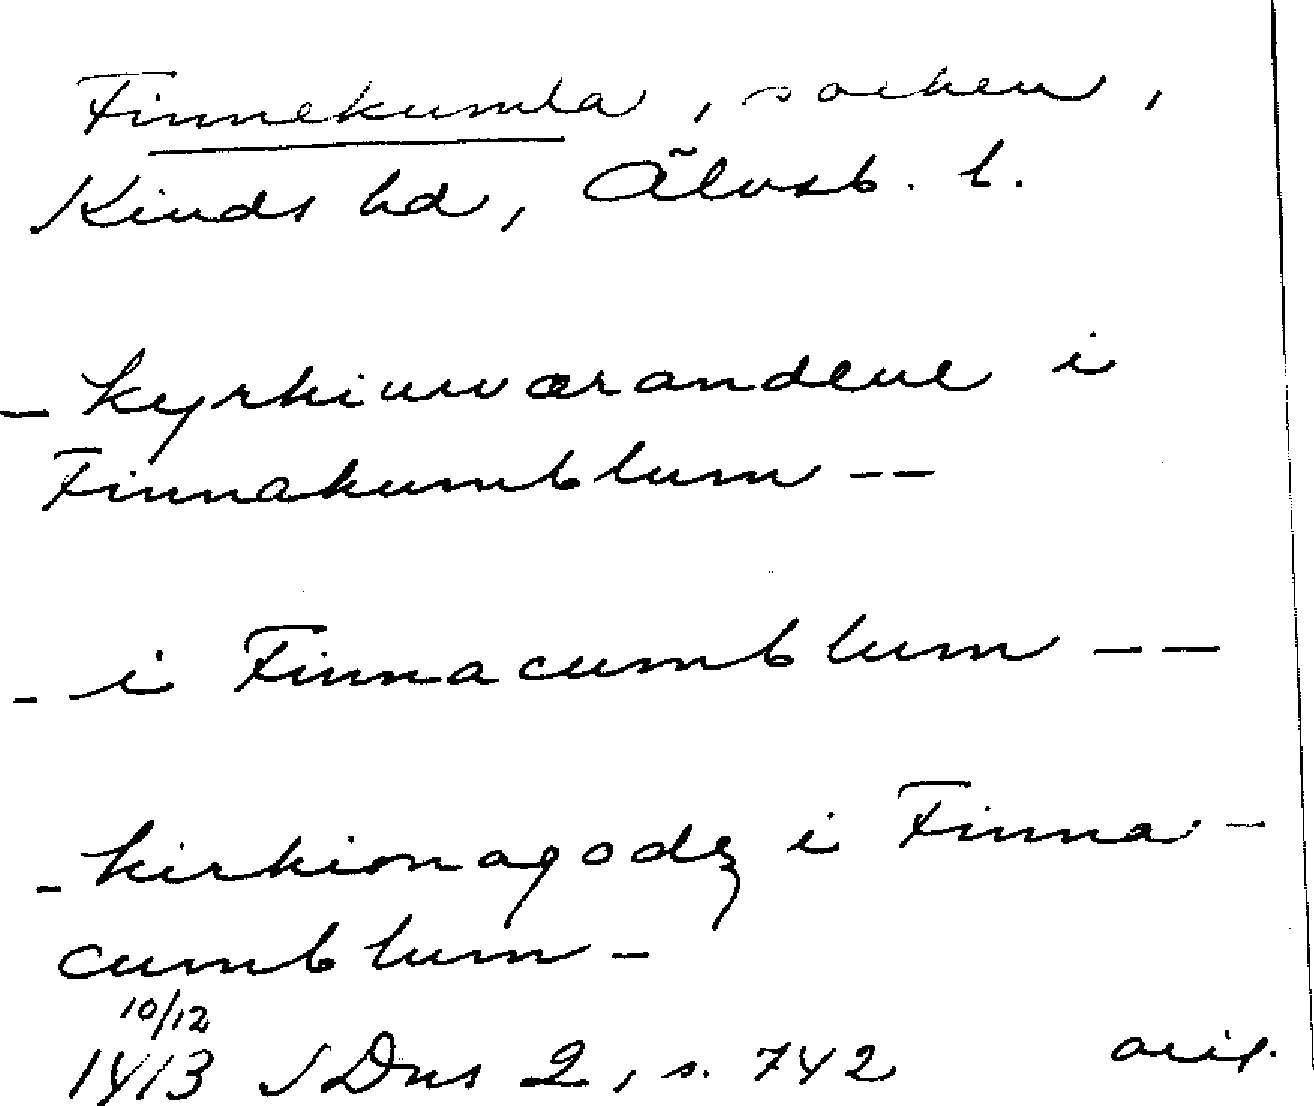 Finnekumla, socken,
Kinds hd, Älvsb. l.
- kyrkiuværandene i
Finnakumblum --
- i Finnacumblum --
- kirkionagodz i Finna-
cumblum -
10/12
1413 SDns 2, s. 742 orig.